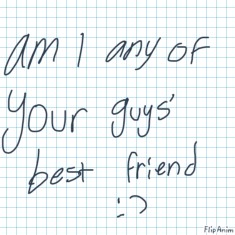 am I any of
your guys'
best friend
:?
FlipAnim